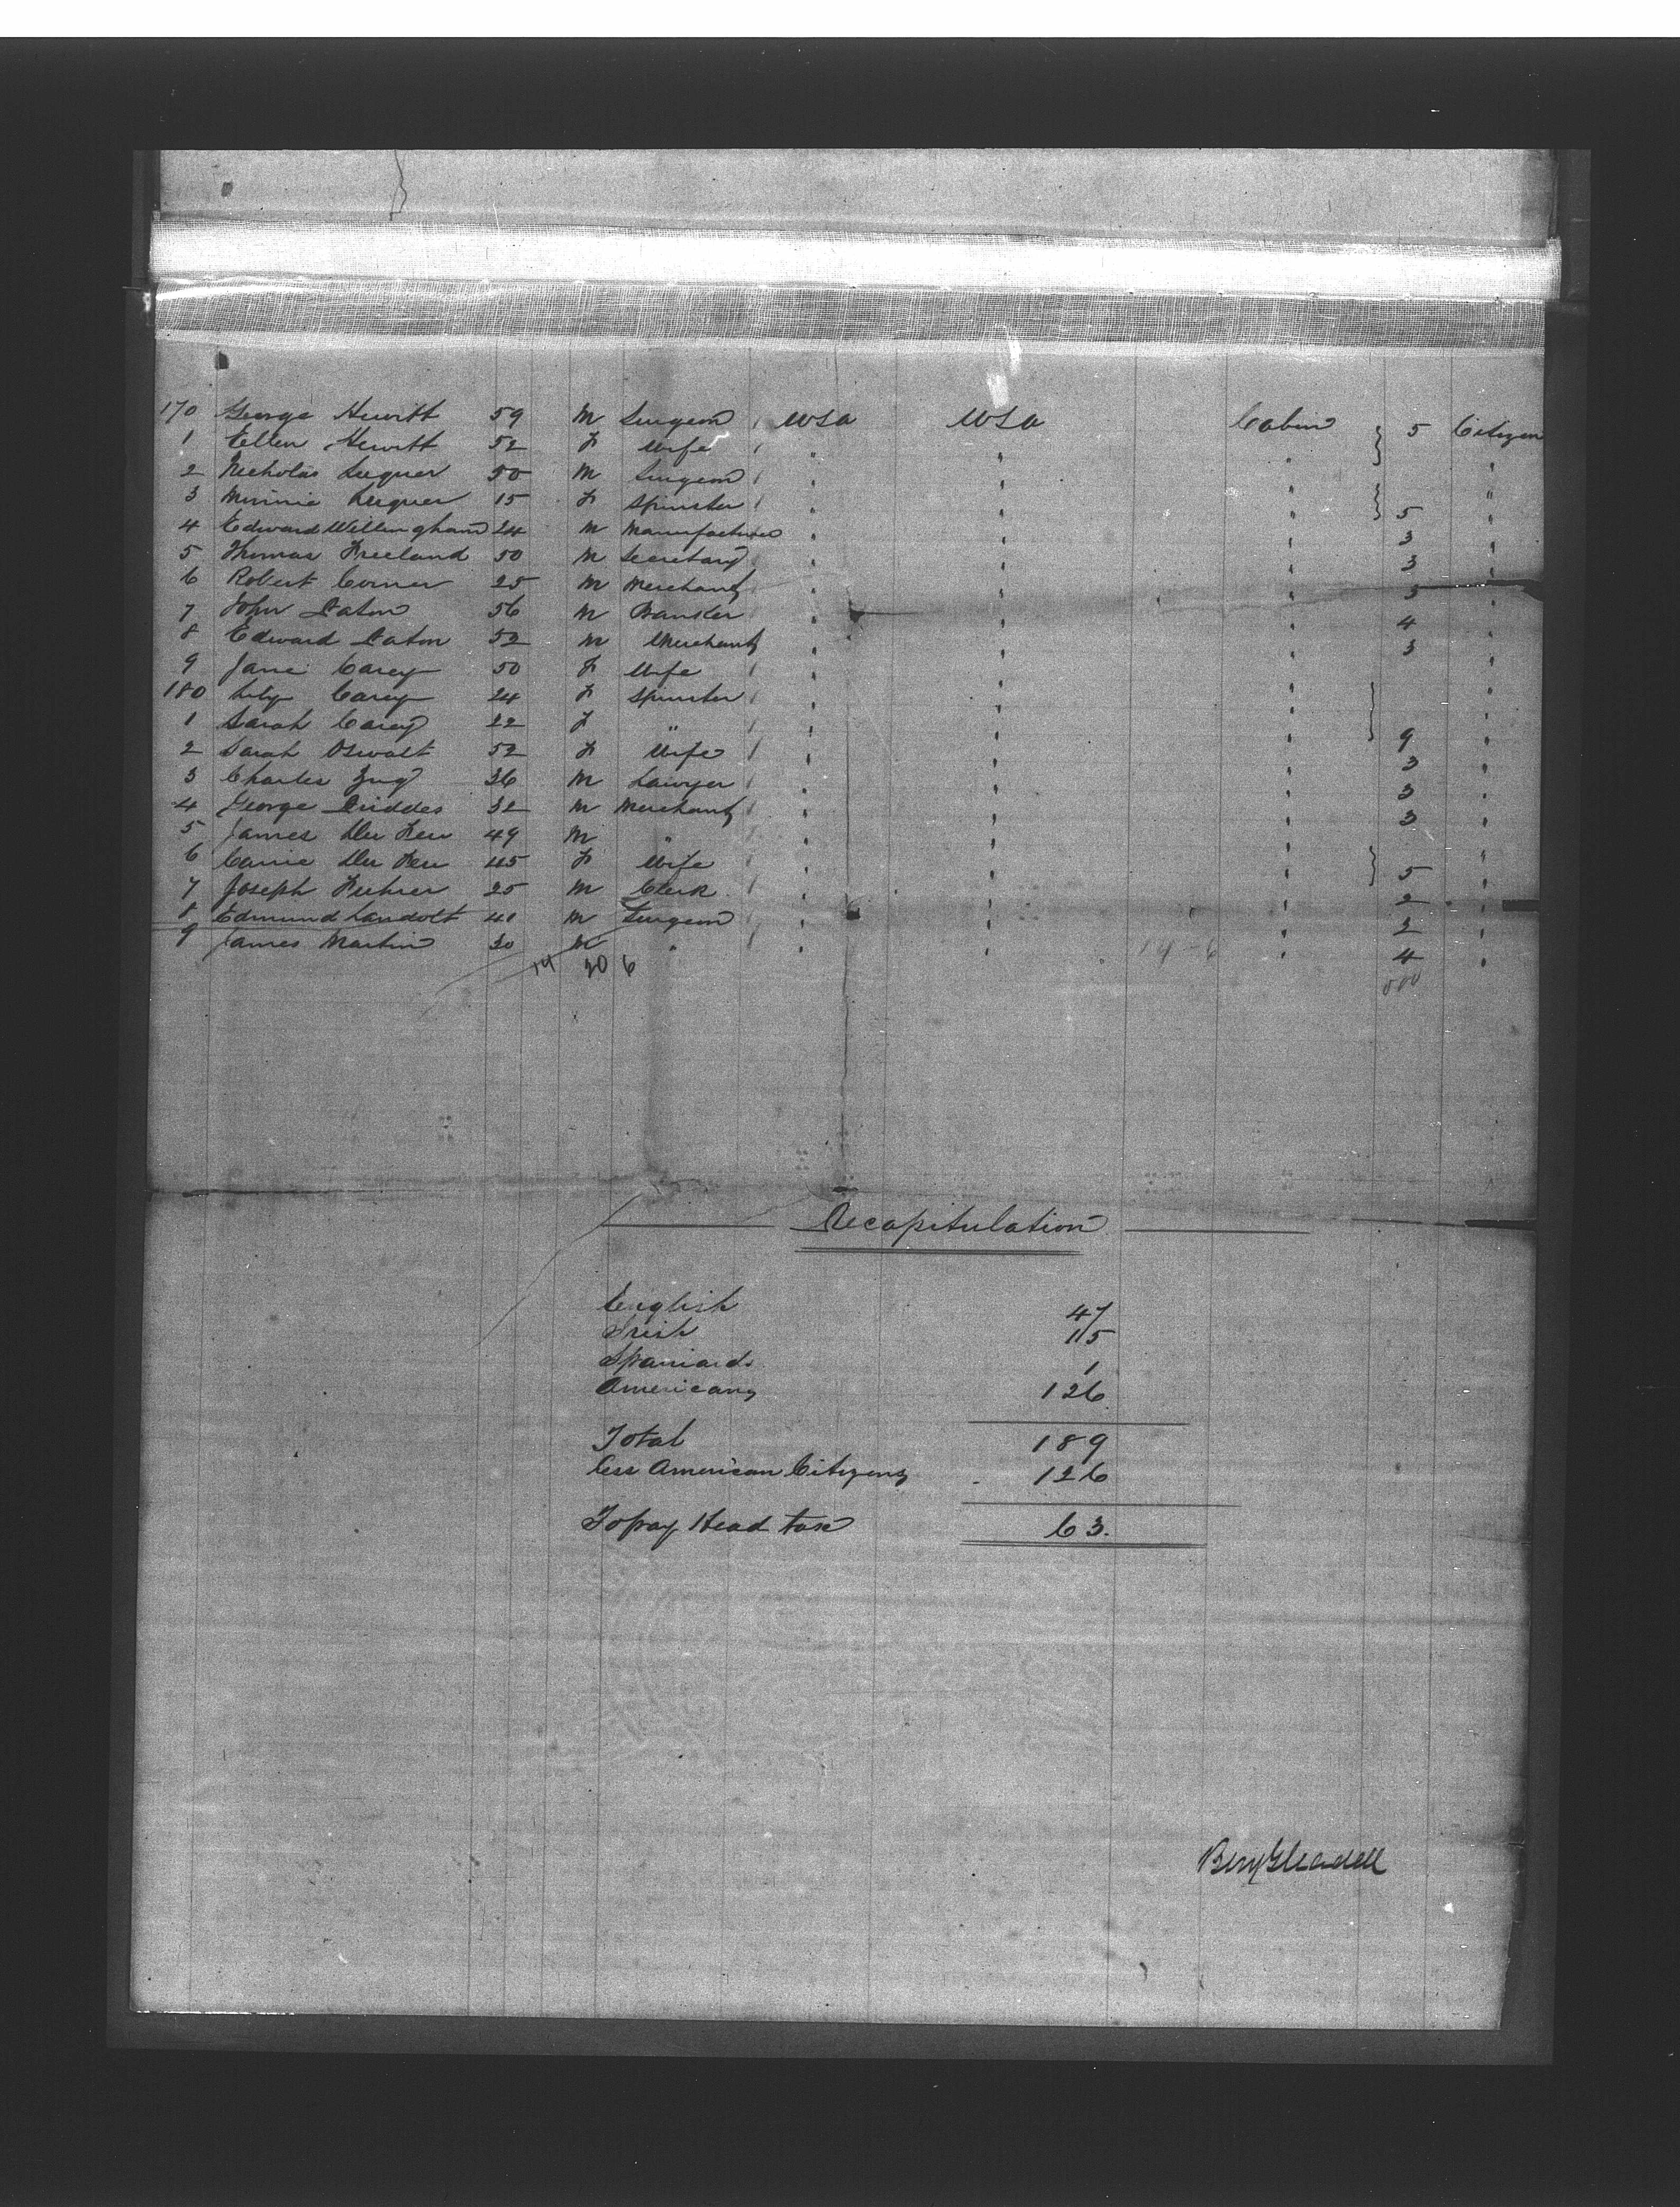 170 George Hewitt 59 M Surgeon USA USA Cabin 5 Citizen
1 Ellen Hewitt 52 F Wife " " " "
2 Nicholas Luquer 50 M Surgeon " " " "
3 Minnie Luquer 15 F Spinster " " " 5 "
4 Edward Willingham 24 M Manufacturer " " " 3 "
5 Thomas Freeland 50 M Secretary " " " 3 "
6 Robert Corner 25 M Merchant " " " 3 "
7 John Eaton 56 M Banker " " " 4 "
8 Edward Eaton 52 M Merchant " " " 3 "
9 Jane Carey 50 F Wife " " "
180 Lily Carey 24 F Spinster " " "
1 Sarah Carey 22 F " " " " 9 "
2 Sarah Oswalt 52 F Wife " " " 3 "
3 Charles Zug 36 M Lawyer " " " 3 "
4 George 32 M Merchant " " " 3 "
5 James 49 M " " " " "
6 Carrie 45 F Wife " " " 5 "
7 Joseph 25 M Clerk " " " 2 "
8 Edmund Landolt 40 M Surgeon " " " 2 "
9 James Martin 30 M " " " " 4 "
14 20 6 14 - 6
Recapitulation
English 47
Irish 15
Spaniards 1
Americans 126
Total 189
less American Citizens 126
To pay Head tax 63.
Benj Gleadell